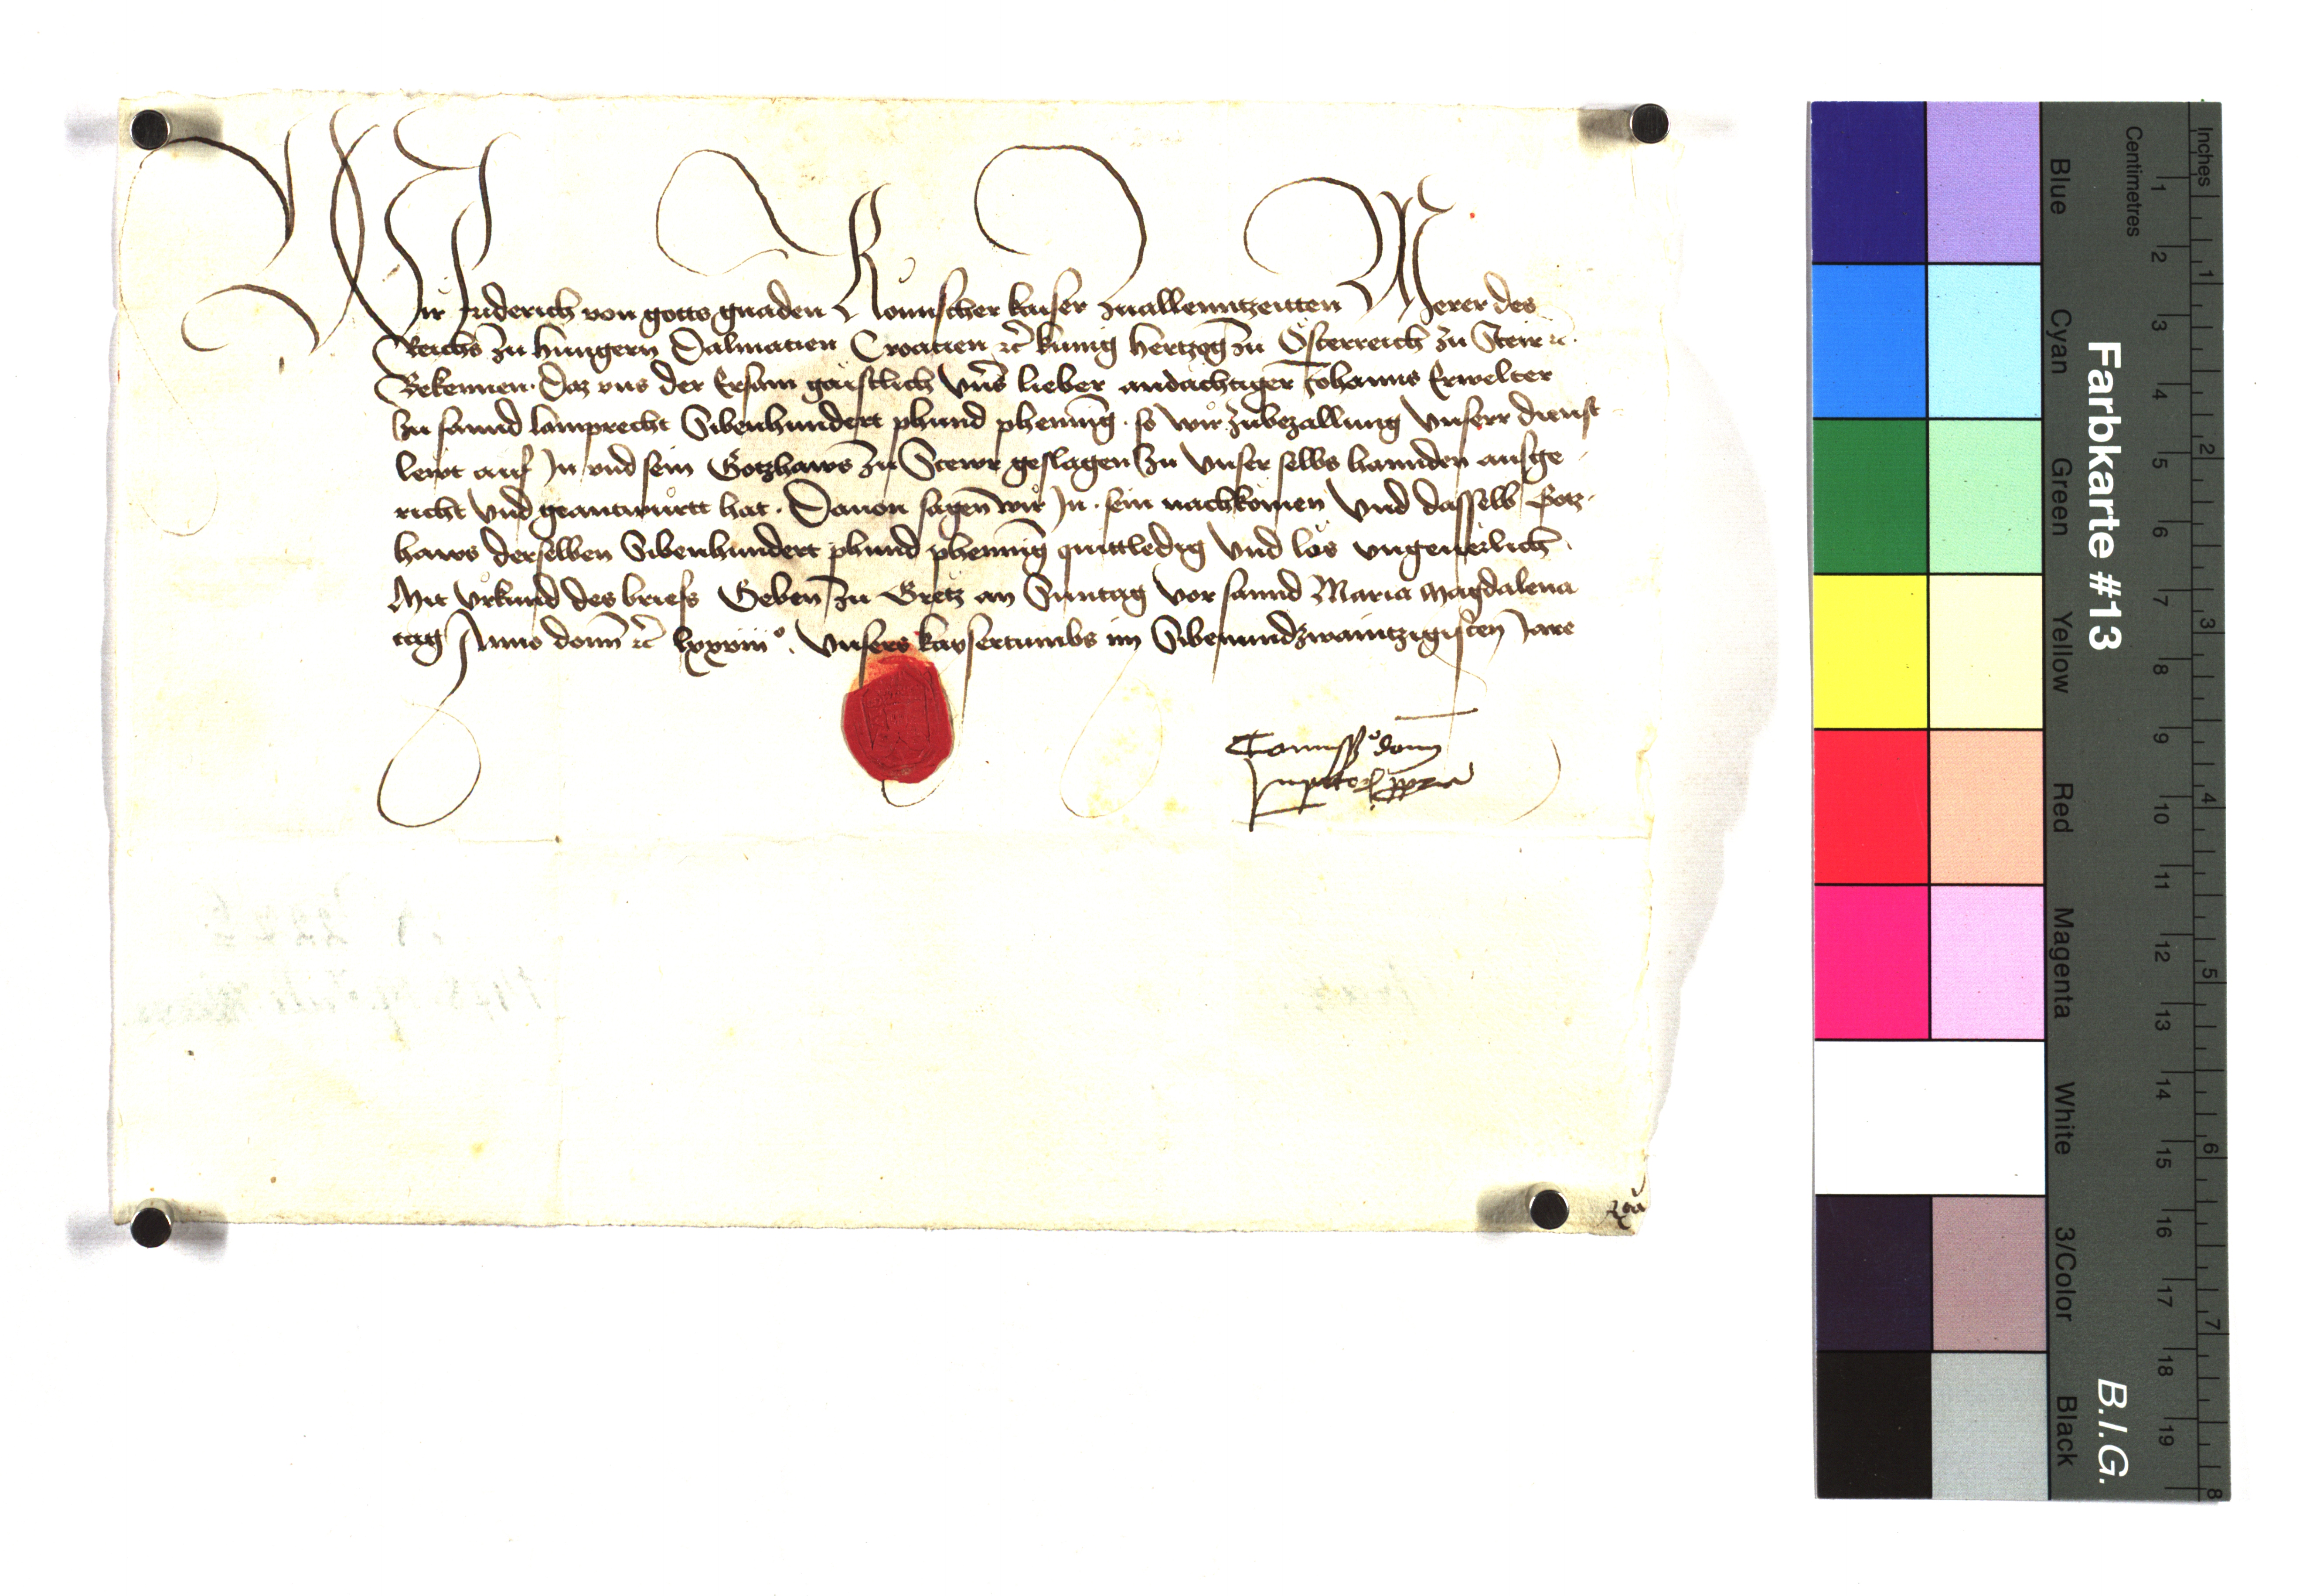 Wir Fridrich von gotts gnaden Romischer kaiser zuallenntzeitten Merer des
Reichs zu Hungern Dalmatien Croatien etc̃ kunig Hertzog zu Österreich zu Steir etc.
Bekennen. Daz vns der Ersam gaistlich Vnser lieber andächtiger Johanns Erwelter
zu sannd Lamprecht Sibenhundert phund phennig. so wir zubezallung Vnserr dienst
lewt auf In vnd sein Gotzhaws zu Stewr geslagen zu Vnser selbs hannden ausge
richt Vnd geantwurtt hat. Dauon sagen wir In. sein nachkömen Vnd dasselb Gotz
haws derselben Sibenhundert phund phennig quittledig Vnd los vngeuerlich.
Mit Vrkund des briefs Geben zu Gretz an Sunntag vor sannd Maria Magdalena
tag Anno domi etc̃ lxxviiiº. Vnsers kaysertumbs im Sibenundzwaintzigisten Jare
Comissº domi
Imperatoris ppria
Rta
Inches
Centimetres
1 2 3 4 5 6 7 8 9 10 11 12 13 14 15 16 17 18 19
1 2 3 4 5 6 7 8
Farbkarte #13
B.I.G.
Blue
Cyan
Green
Yellow
Red
Magenta
White
3/Color
Black